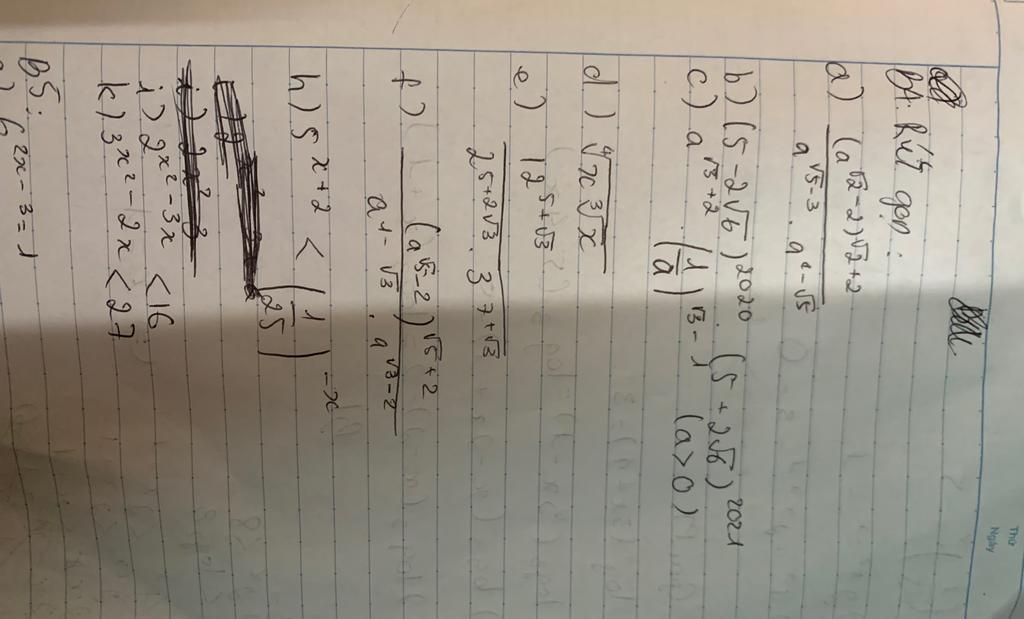 Thứ
Ngày
b4. Rút gọn:
a) (a^√2 - 2)^√2 + 2 / a^√5 - 3 . a^4 - √5
b) (5 - 2√6)^2020 . (5 + 2√6)^2021
c) a^√3 + 2 (1/a)^√3 - 1 (a > 0)
d) ⁴√x ³√x
e) 12^5 + √3 / 2^5 + 2√3 . 3^7 + √3
f) (a^√5 - 2)^√5 + 2 / a^1 - √3 . a^√3 - 2
h) 5^x + 2 < (1/25)^-x
i) 2^x² - 3x < 16
k) 3^x² - 2x < 27
B5:
6^2x - 3 = 1